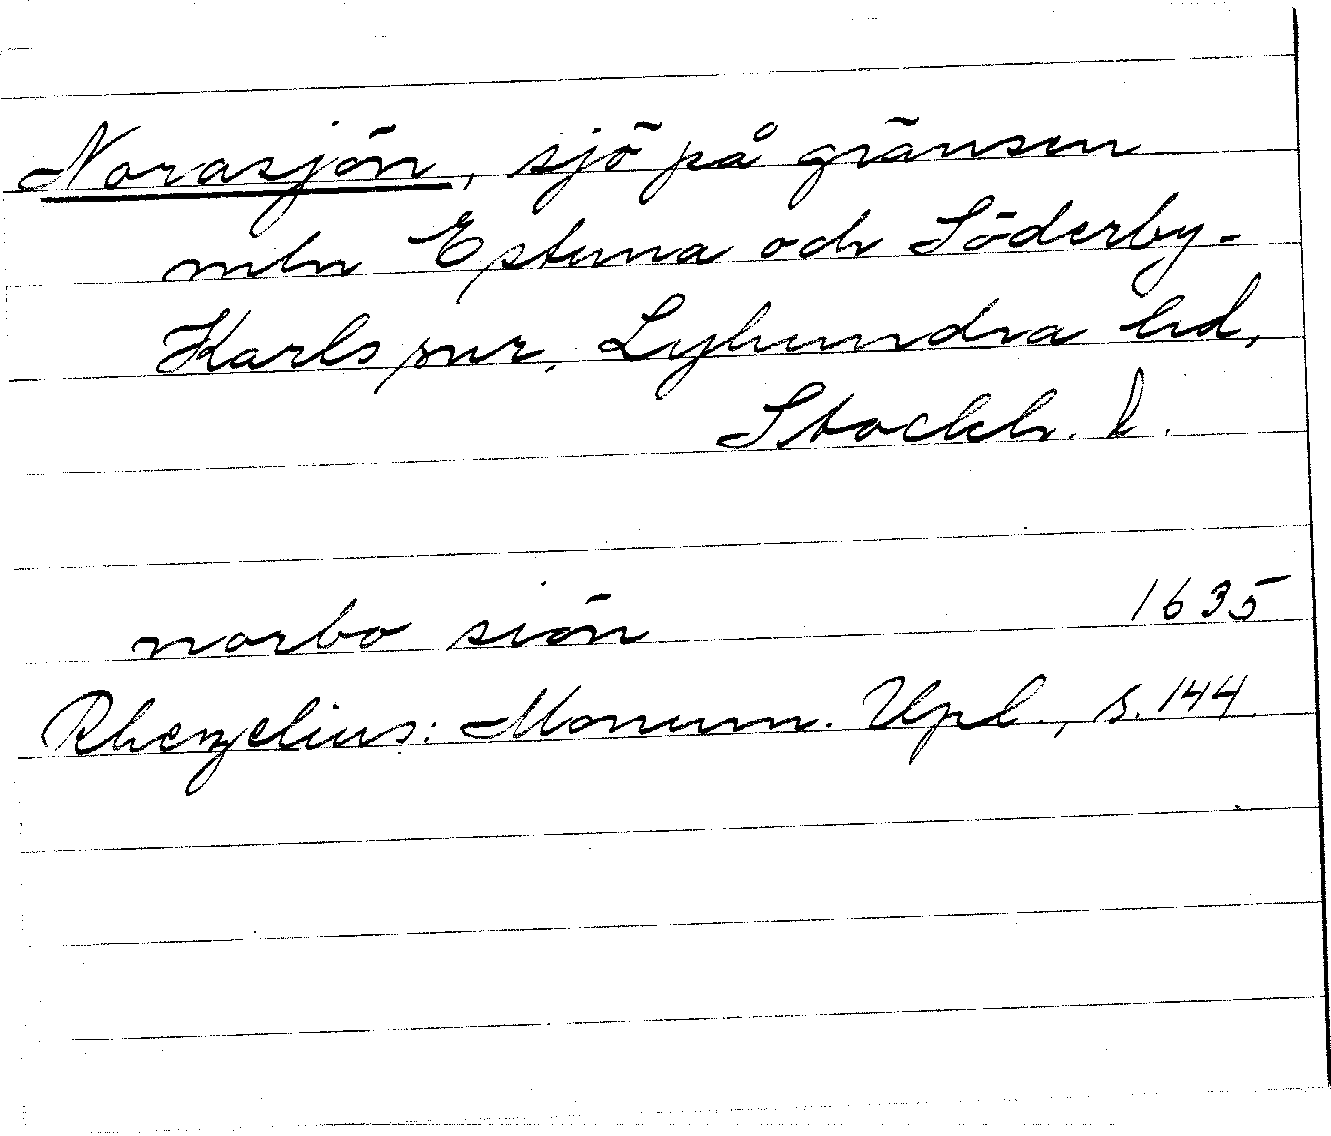 Norasjön, sjö på gränsen
mln Estuna och Söderby-
Karls snr, Lyhundra hd,
Stockh. l.
norbo siön 1635
Rhezelius: Monum. Upl., s. 144.